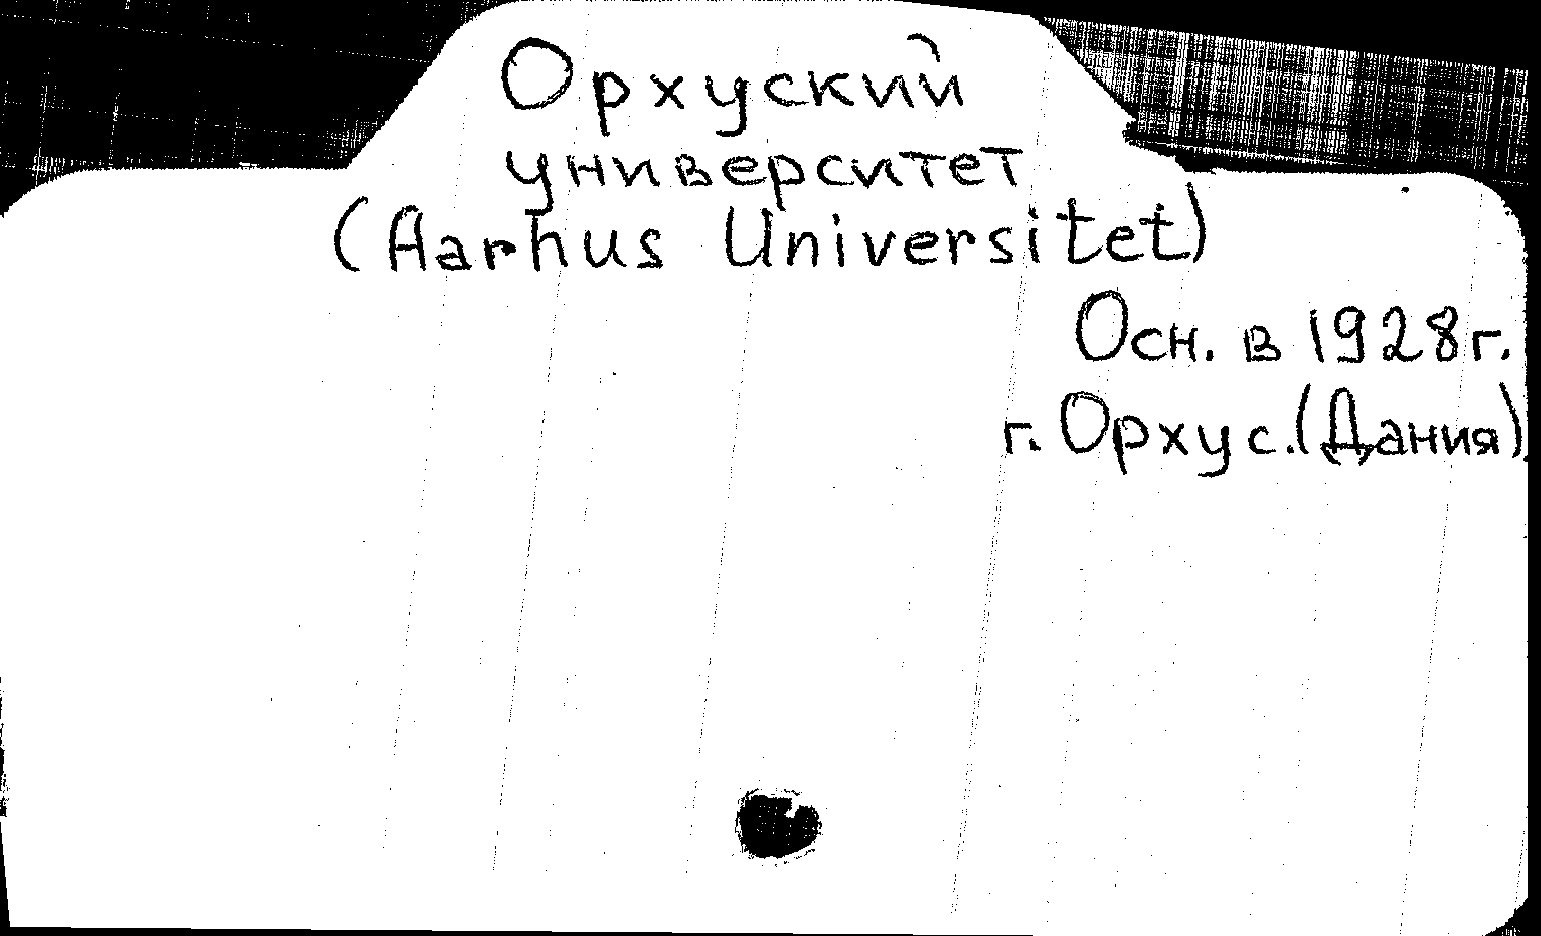 Орхуский
университет
(Aarhus Universitet)
Осн. в 1928 г.
г. Орхус. (Дания)